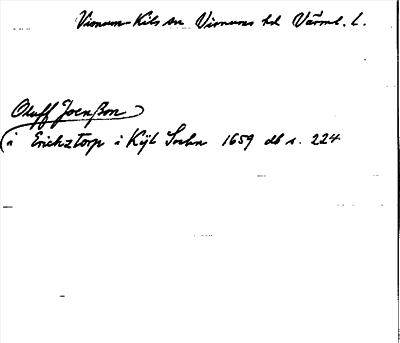 Visnum-Kils sn Visnums hd Värml. l.
Oluff Joenßon
i Erichztorp i Kijl Sochn 1659 db s. 224